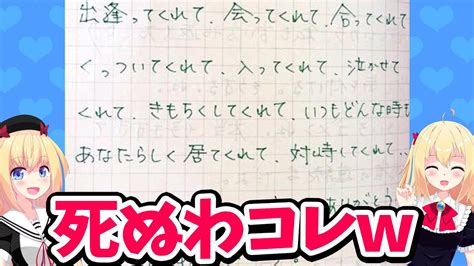 出逢ってくれて、会ってくれて、合ってくれて
くっついてくれて、入ってくれて、泣かせて
くれて、きもちくしてくれて、いつもどんな時も
あなたらしく居てくれて、対峙してくれて…
ありがとう
死ぬわコレw